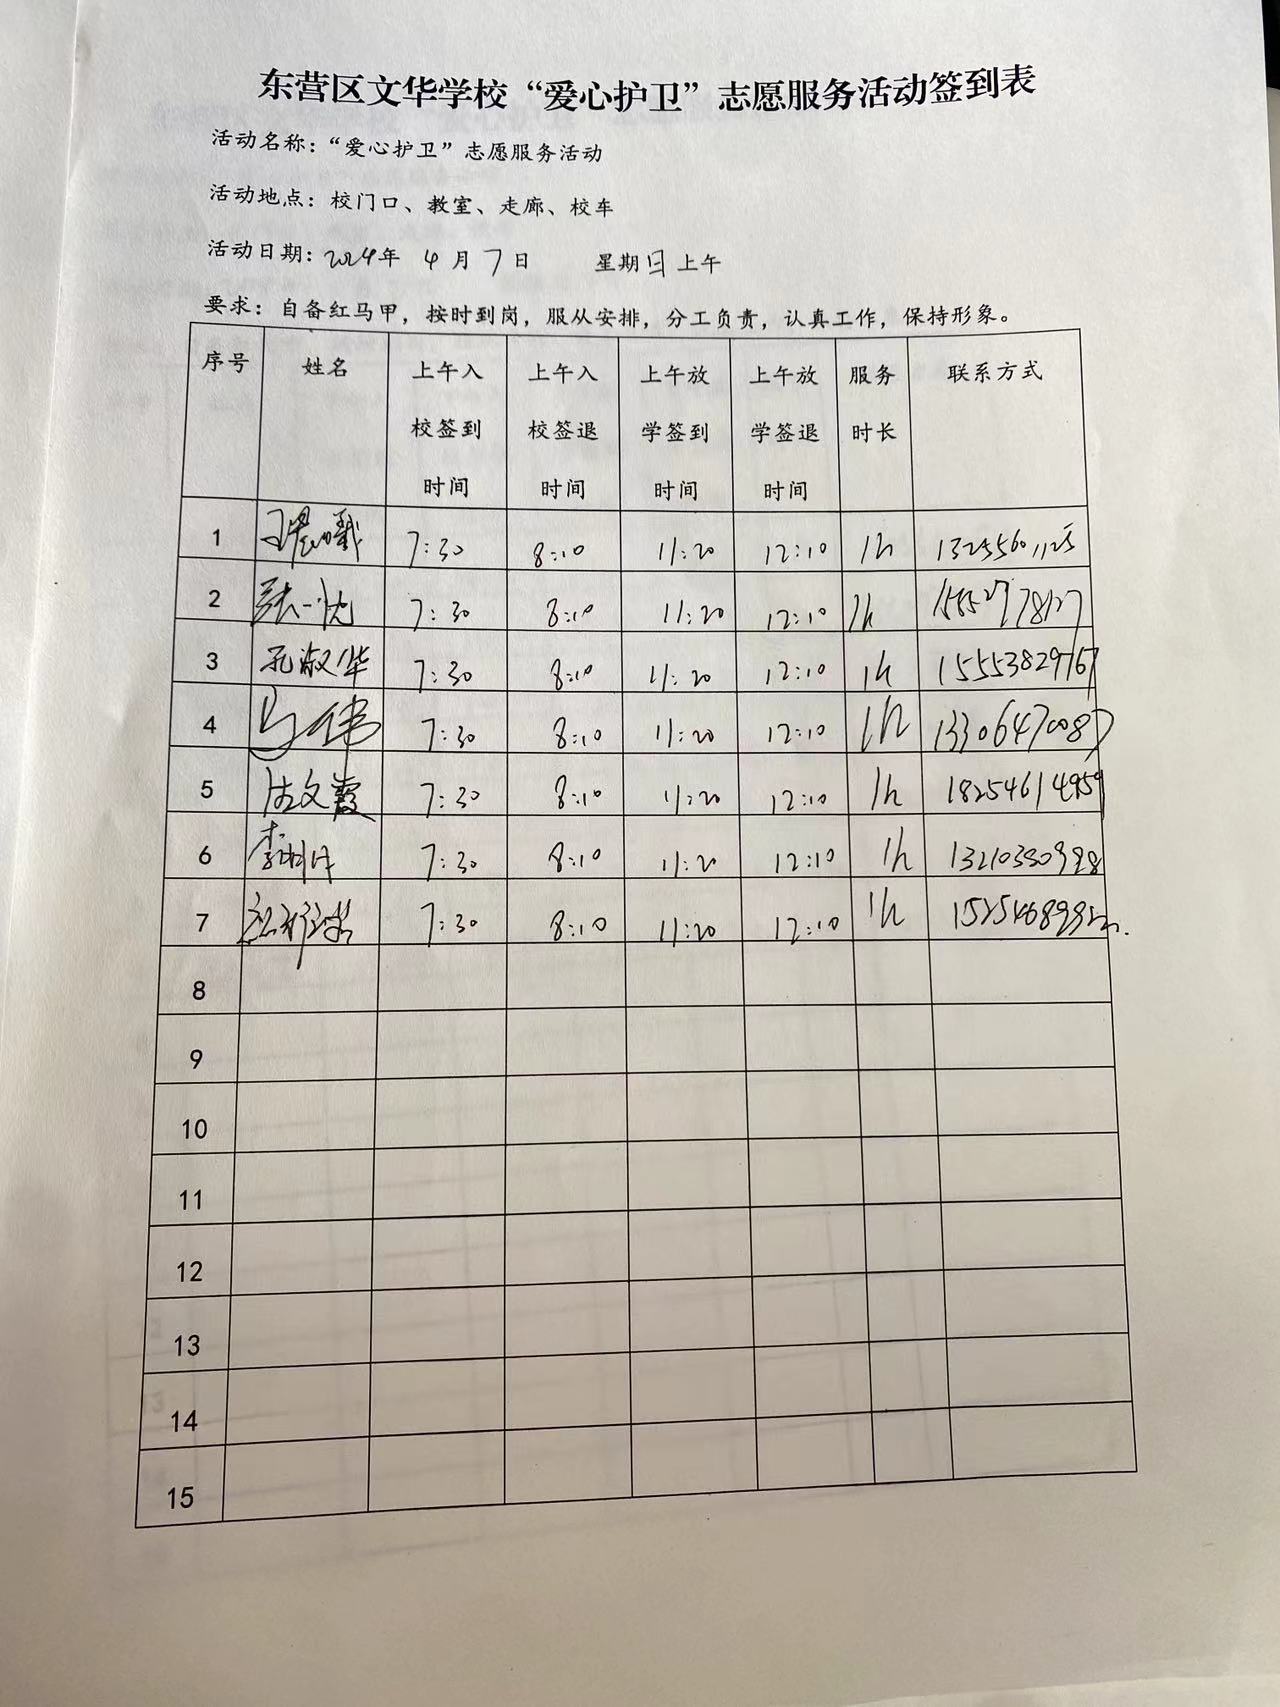 东营区文华学校“爱心护卫”志愿服务活动签到表
活动名称：“爱心护卫”志愿服务活动
活动地点：校门口、教室、走廊、校车
活动日期：2024年 4月7日 星期日上午
要求：自备红马甲，按时到岗，服从安排，分工负责，认真工作，保持形象。
序号 姓名 上午入校签到时间 上午入校签退时间 上午放学签到时间 上午放学签退时间 服务时长 联系方式
1 7:30 8:10 11:20 12:10 1h 13255601125
2 7:30 8:10 11:20 12:10 1h
3 孔淑华 7:30 8:10 11:20 12:10 1h 15553829767
4 马伟 7:30 8:10 11:20 12:10 1h 13306470087
5 7:30 8:10 11:20 12:10 1h 18254614959
6 7:30 8:10 11:20 12:10 1h
7 7:30 8:10 11:20 12:10 1h
8
9
10
11
12
13
14
15